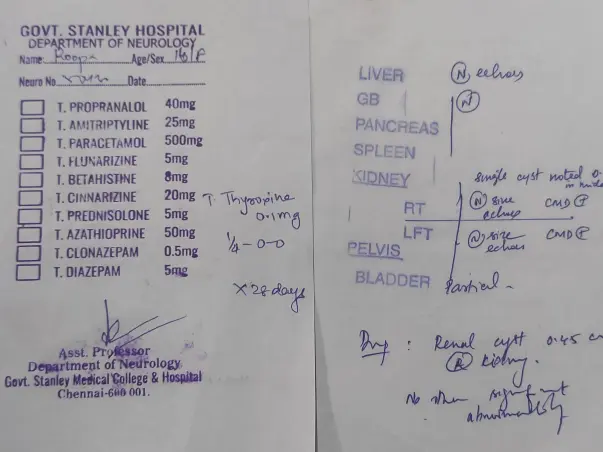 GOVT. STANLEY HOSPITAL
DEPARTMENT OF NEUROLOGY
Name Roopa Age/Sex 16/F
Neuro No Date
T. PROPRANALOL 40mg
T. AMITRIPTYLINE 25mg
T. PARACETAMOL 500mg
T. FLUNARIZINE 5mg
T. BETAHISTINE 8mg
T. CINNARIZINE 20mg
T. PREDNISOLONE 5mg
T. AZATHIOPRINE 50mg
T. CLONAZEPAM 0.5mg
T. DIAZEPAM 5mg
T. Thyroxine
0.1mg
1/4-0-0
X 28 days
Asst. Professor
Department of Neurology
Govt. Stanley Medical College & Hospital
Chennai-600 001.
LIVER (N) echoes
GB (N)
PANCREAS
SPLEEN
KIDNEY single cyst noted
RT (N) size echoes CMD (P)
LFT (N) size echoes CMD (P)
PELVIS
BLADDER Partial
Imp : Renal cyst 0.45
(R) kidney.
No other significant
abnormality